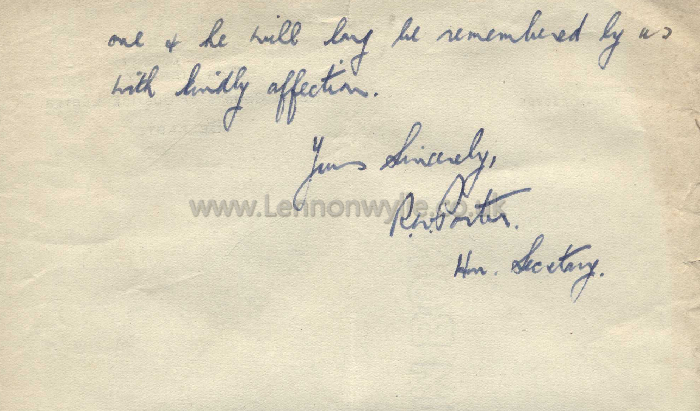 one & he will long be remembered by us
with kindly affection.
Yours Sincerely,
www.Lennonwylie.co.uk
R.W. Porter.
Hon. Secretary.